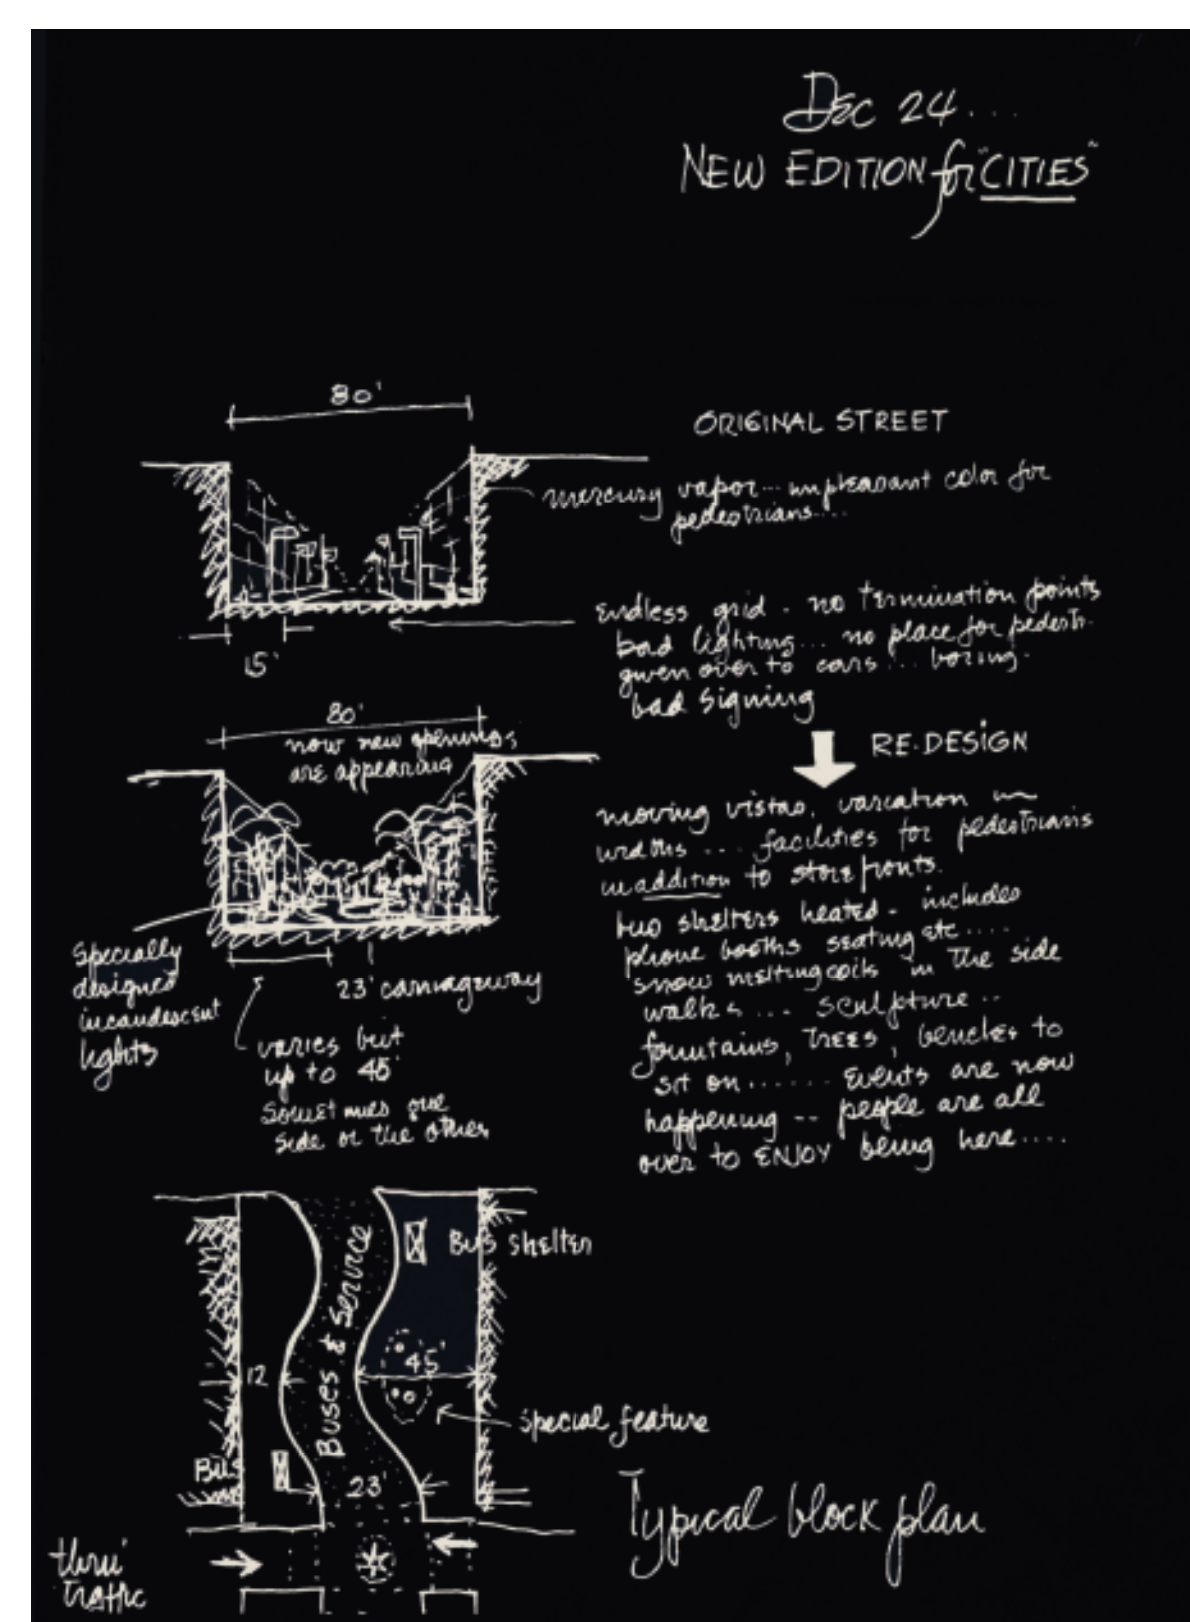 Dec 24...
NEW EDITION for "CITIES"
80'
ORIGINAL STREET
mercury vapor... unpleasant color for
pedestrians....
15'
Endless grid - no termination points
bad lighting... no place for pedestr.
given over to cars... boring.
bad signing
80'
now new openings
are appearing
RE-DESIGN
moving vistas, variation in
widths ... facilities for pedestrians
in addition to store fronts.
bus shelters heated - includes
phone booths seating etc....
snow melting coils in the side
walks ... sculpture ..
fountains, trees, benches to
sit on ...... events are now
happening -- people are all
over to ENJOY being here....
Specially
designed
incandescent
lights
23' carriageway
varies but
up to 45'
Sometimes one
side or the other
Buses & Service
Bus shelter
12
45'
special feature
Bus
23'
Typical block plan
thru'
traffic